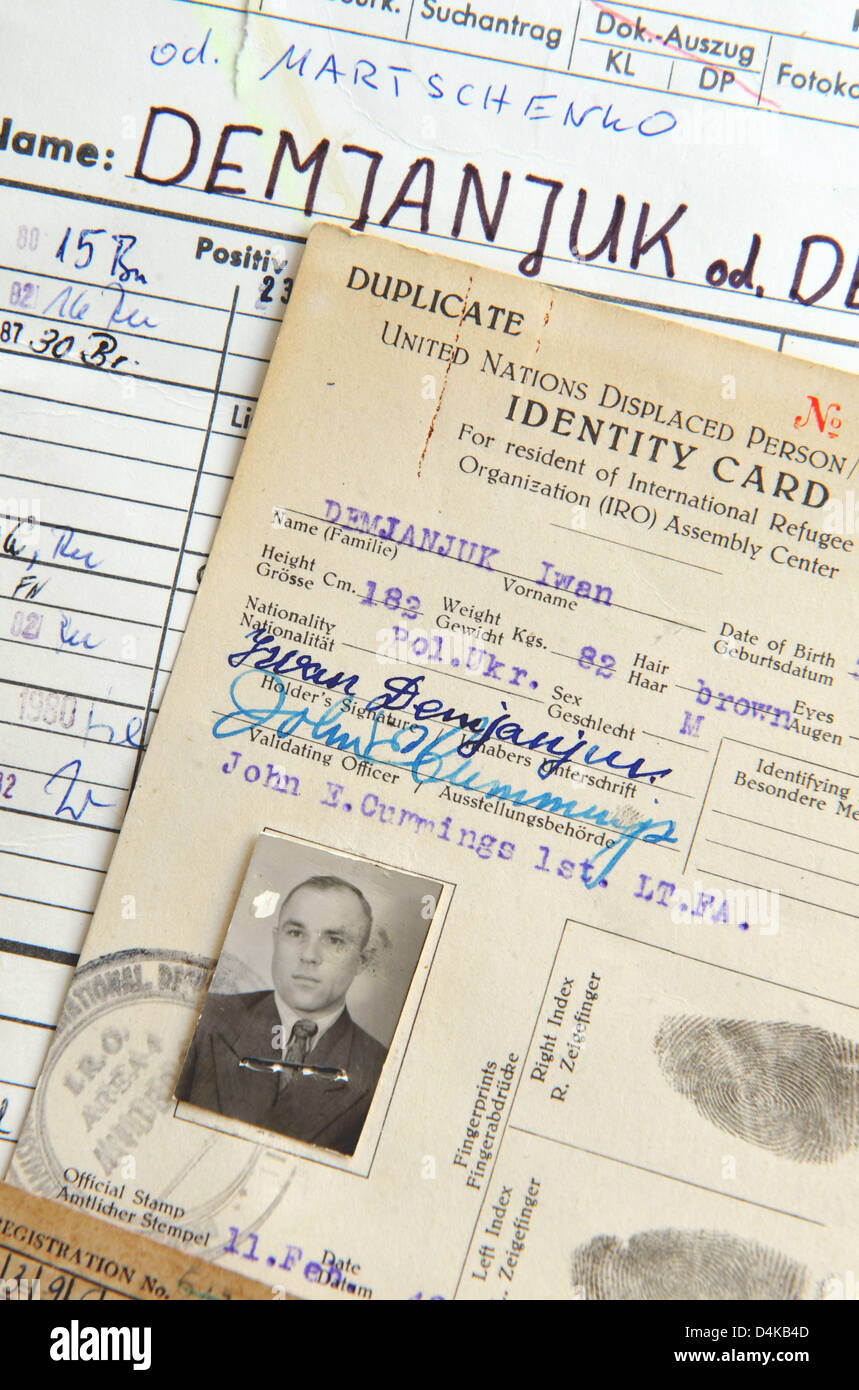 Suchantrag
Dok.-Auszug
KL DP
Fotoko
od. MARTSCHENKO
Name: DEMJANJUK od. DE
80 15 Bu
Positiv
23
82
87 30 Br.
Li
FN
82
1980
DUPLICATE
UNITED NATIONS DISPLACED PERSON/
No
IDENTITY CARD
For resident of International Refugee
Organization (IRO) Assembly Center
DEMJANJUK Iwan
Name (Familie) Vorname
Height Cm. 182 Weight Kgs. 82 Hair brown
Grösse Gewicht Haar
Date of Birth
Geburtsdatum
Eyes
Augen
Nationality Pol.Ukr. Sex M
Nationalität Geschlecht
Iwan Demjanjuk.
Holder's Signature / Inhabers Unterschrift
John E Cummings
Validating Officer / Ausstellungsbehörde
John E.Cummings 1st. LT.FA.
Identifying
Besondere Me
Right Index
R. Zeigefinger
Fingerprints
Fingerabdrücke
Left Index
L. Zeigefinger
I.R.O.
AREA
Official Stamp
Amtlicher Stempel
11.Feb.
Date
Datum
REGISTRATION No.
alamy
Image ID: D4KB4D
www.alamy.com